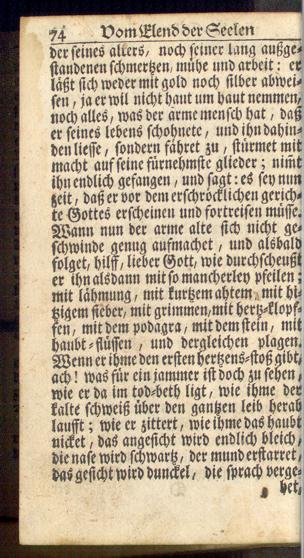 74 Vom Elend der Seelen
der seines alters, noch seiner lang außge-
standenen schmertzen, mühe und arbeit: er
läßt sich weder mit gold noch silber abwei-
sen, ja er wil nicht haut um haut nemmen,
noch alles, was der arme mensch hat, daß
er seines lebens schohnete, und ihn dahin-
den liesse, sondern fähret zu, stürmet mit
macht auf seine fürnehmste glieder; nim̃t
ihn endlich gefangen, und sagt: es sey nun
zeit, daß er vor dem erschröcklichen gerich-
te Gottes erscheinen und fortreisen müsse.
Wann nun der arme alte sich nicht ge-
schwinde genug aufmachet, und alsbald
folget, hilff, lieber Gott, wie durchscheußt
er ihn alsdann mit so mancherley pfeilen;
mit lähmung, mit kurtzem ahtem, mit hi-
tzigem fieber, mit grimmen, mit hertz-klopf-
fen, mit dem podagra, mit dem stein, mit
haubt-flüssen, und dergleichen plagen.
Wenn er ihme den ersten hertzens-stoß gibt,
ach! was für ein jammer ist doch zu sehen,
wie er da im tod-beth ligt, wie ihme der
kalte schweiß über den gantzen leib herab
laufft; wie er zittert, wie ihme das haubt
nicket, das angesicht wird endlich bleich,
die nase wird schwartz, der mund erstarret,
das gesicht wird dunckel, die sprach verge-
het,